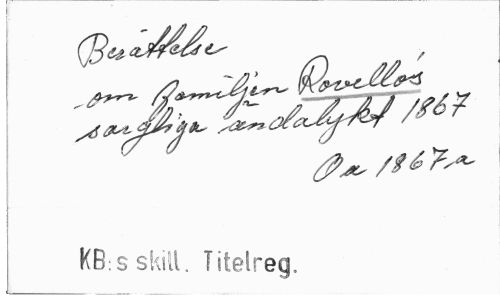 Berättelse
om familjen Rovello's
sorgliga ändalykt 1867
Oa 1867.a
KB:s skill. Titelreg.